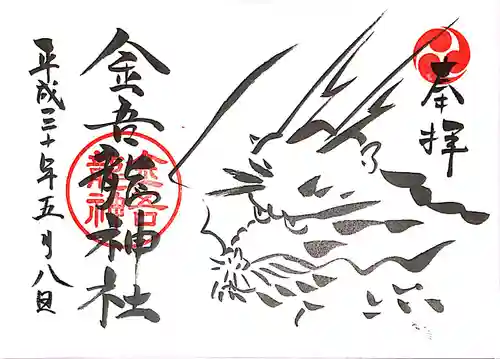 奉拝
金吾龍神社
金吾龍神
平成三十年五月八日